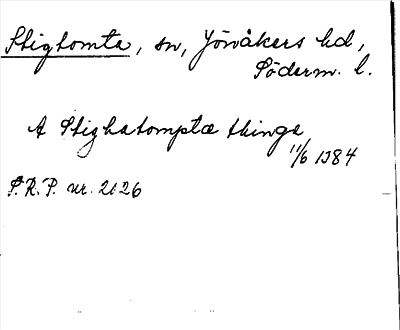 Stigtomta, sn, Jönåkers hd,
Söderm. l.
A Stighatomptæ thinge
11/6 1384
S.R.P. nr. 2126